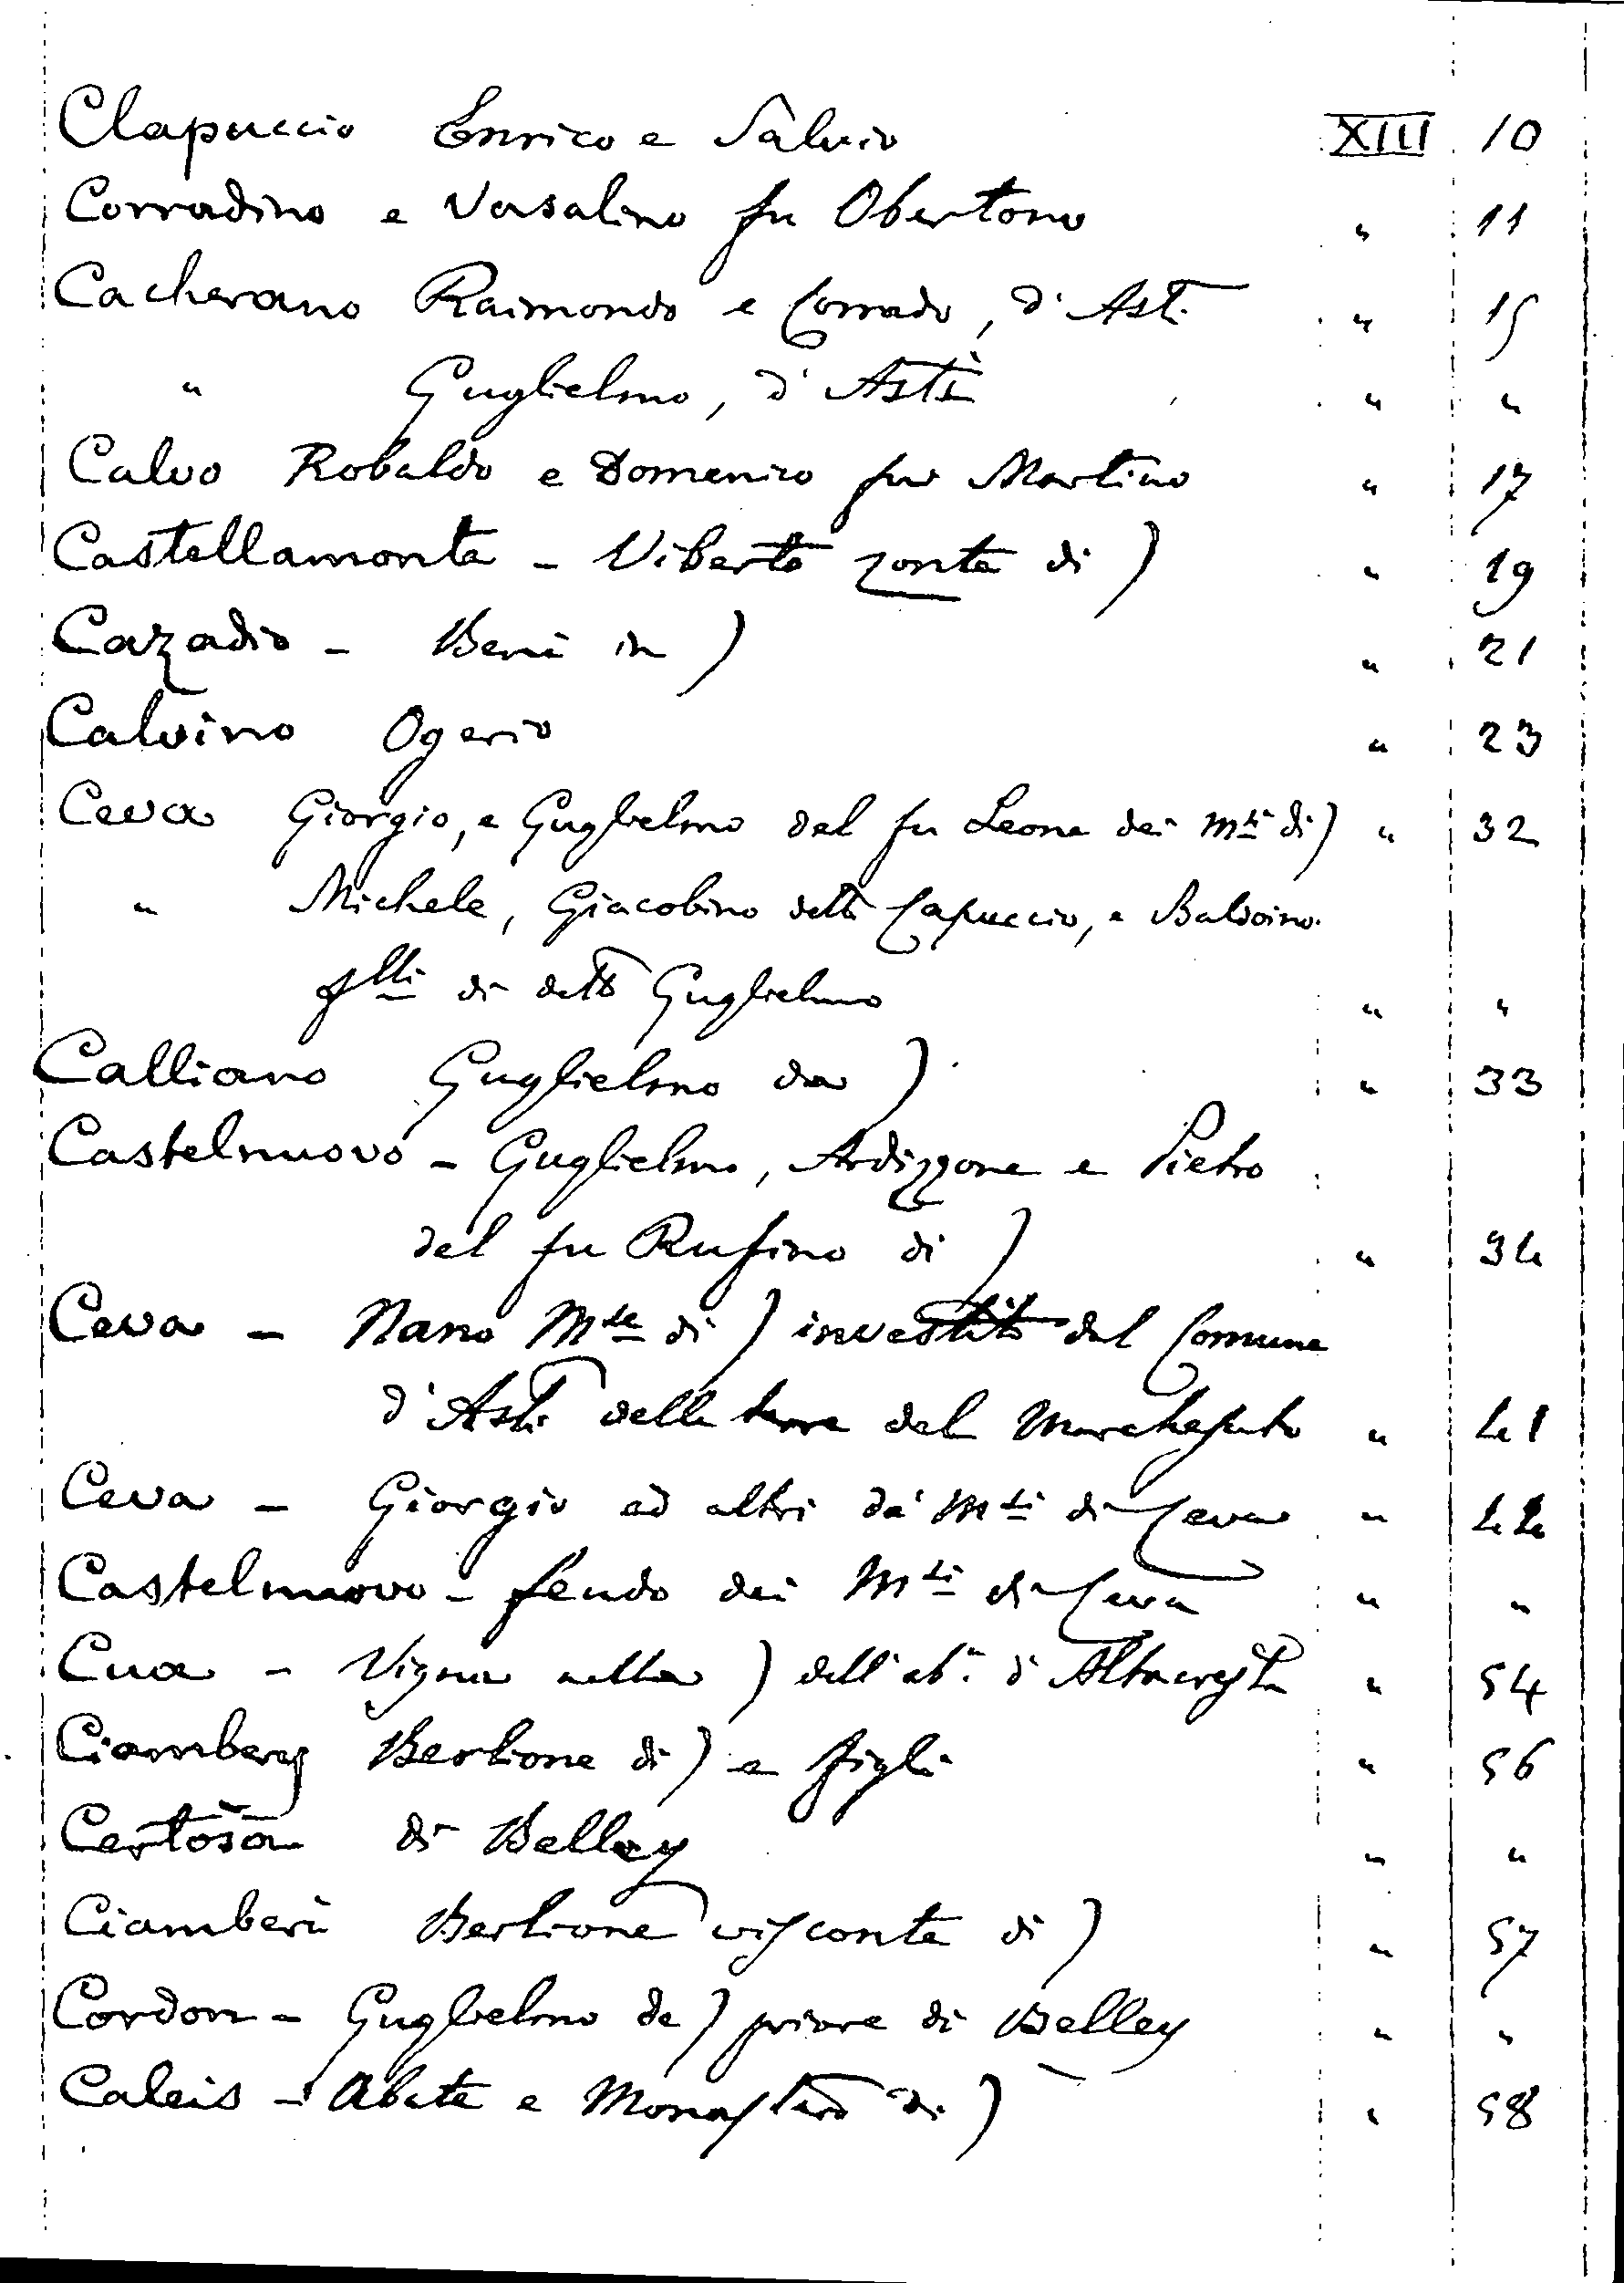 Clapuccio Enrico e Salvio XIII 10
Corradino e Vasalino fu Obertono " 11
Cacherano Raimondo e Corrado, d'Asti " 15
" Guglielmo, d'Asti " "
Calvo Robaldo e Domenico fu Martino " 17
Castellamonte - Viberto conte di) " 19
Cazadio - Beni in) " 21
Calvino Ogerio " 23
Ceva Giorgio, e Guglielmo del fu Leone dei Mti di) " 32
" Michele, Giacobino detto Capuccio, e Baldoino
flli di detto Guglielmo " "
Calliano Guglielmo da) " 33
Castelnuovo - Guglielmo, Ardizzone e Pietro
del fu Rufino di) " 34
Ceva - Nano Mse di) investito dal Comune
d'Asti delle terre del Marchesato " 41
Ceva - Giorgio ed altri de' Mti di Ceva " 44
Castelnuovo - feudo dei Mti di Ceva " "
Cua - Vigna nella) dell'ab. d' " 54
Ciambery Berlione di) e figli " 56
Certosa di Belley " "
Ciamberi Berlione visconte di) " 57
Cordon - Guglielmo de) priore di Belley " "
Caleis - Abate e Monastero di) " 58